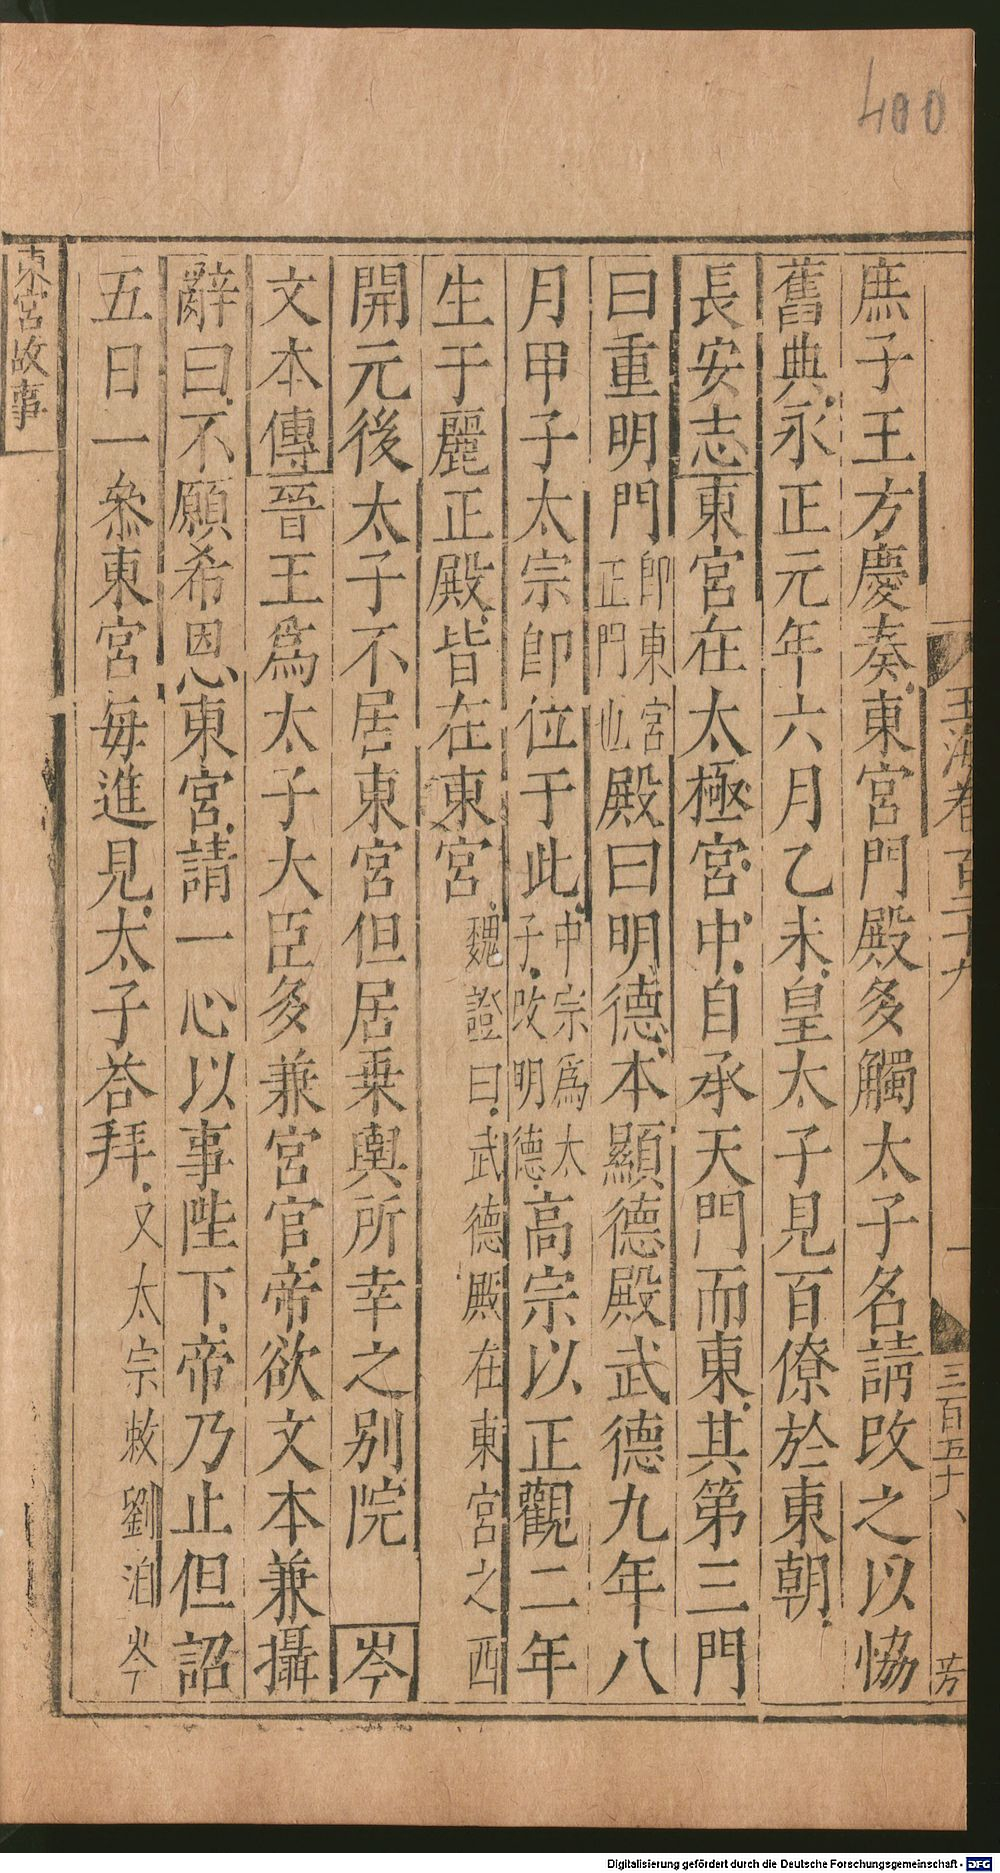 400
玉海卷一百二十九
一
三百五十八
芳
庶子王方慶奏東宮門殿多觸太子名請改之以恊
舊典永正元年六月乙未皇太子見百僚於東朝
長安志東宮在太極宮中自承天門而東其第三門
曰重明門即東宮正門也殿曰明德本顯德殿武德九年八
月甲子太宗即位于此中宗爲太子改明德高宗以正觀二年
生于麗正殿皆在東宮魏證曰武德殿在東宮之西
開元後太子不居東宮但居乗輿所幸之别院 岑
文本傳晉王爲太子大臣多兼宮官帝欲文本兼攝
辭曰不願希恩東宮請一心以事陛下帝乃止但詔
五日一叅東宮每進見太子荅拜又太宗敕劉洎岑
東宮故事
Digitalisierung gefördert durch die Deutsche Forschungsgemeinschaft - DFG